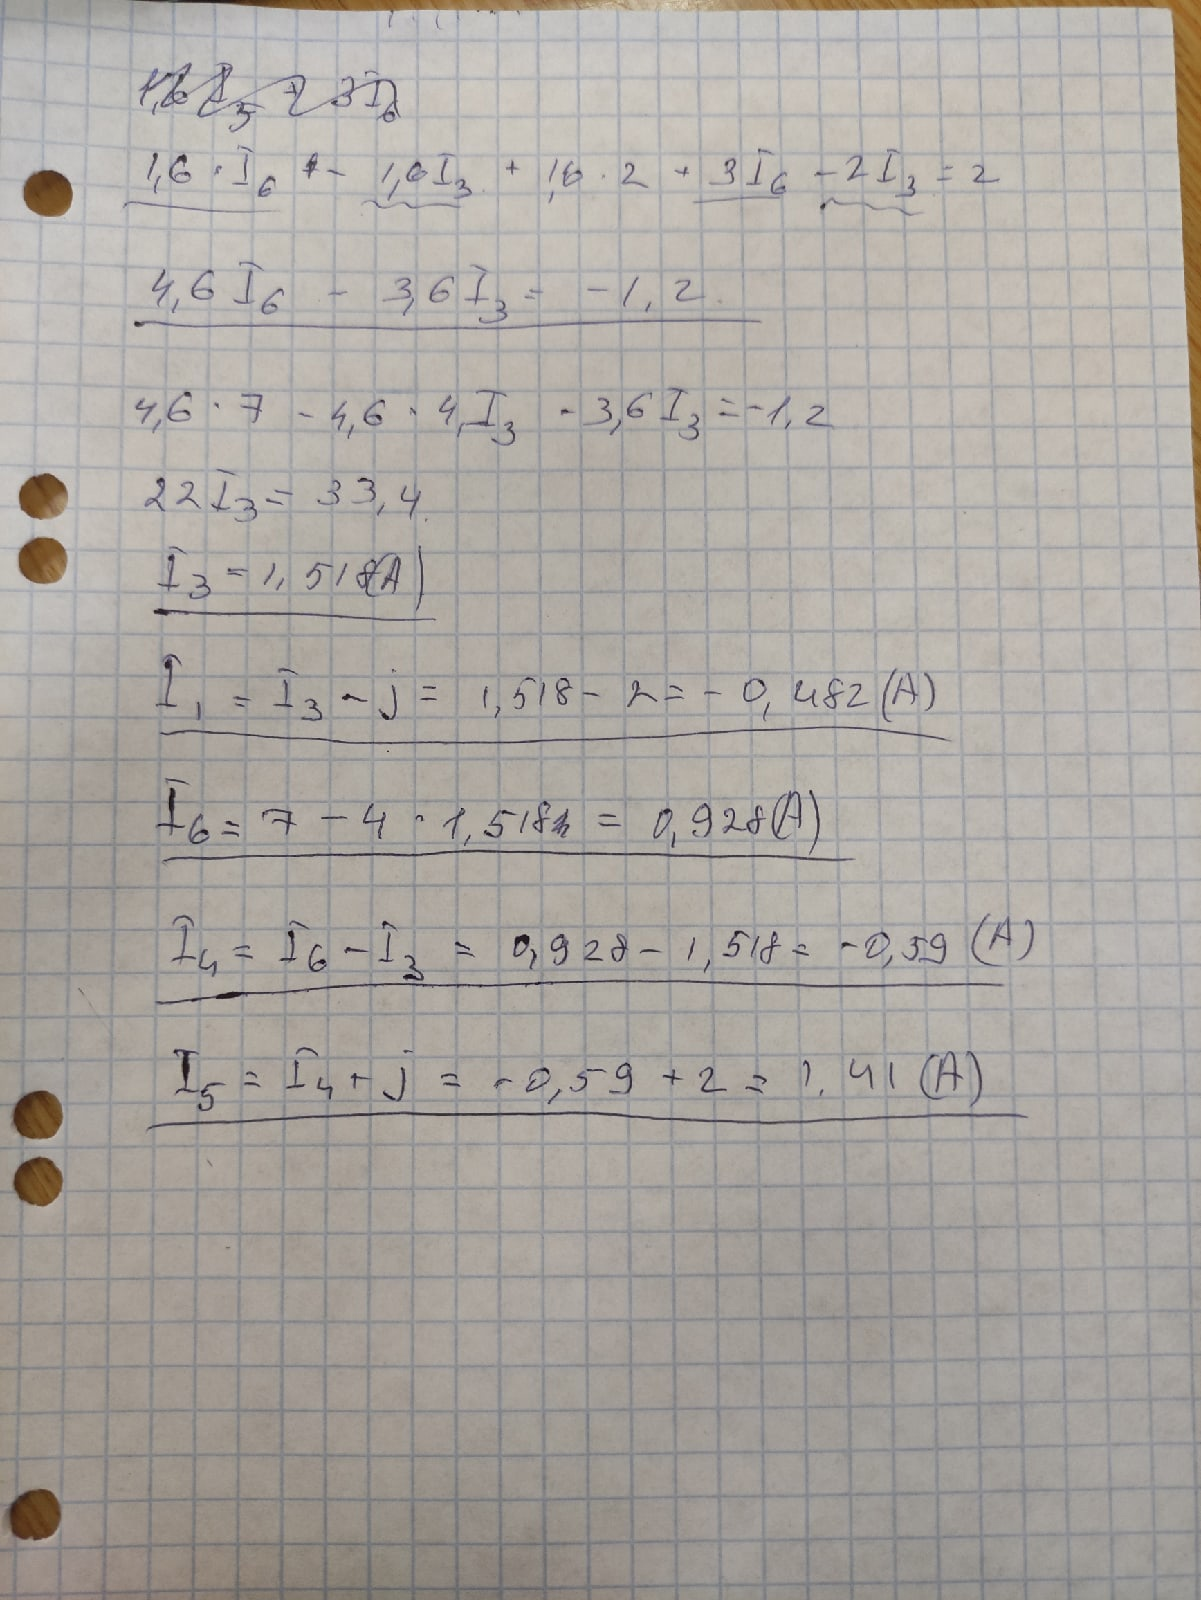 1,6 · I₆ - 1,6I₃ + 1,6 · 2 + 3I₆ - 2I₃ = 2
4,6 I₆ - 3,6 I₃ = -1,2
4,6 · 7 - 4,6 · 4 I₃ - 3,6 I₃ = -1,2
22 I₃ = 33,4
I₃ = 1,518(A)
I₁ = I₃ - j = 1,518 - 2 = - 0,482 (A)
I₆ = 7 - 4 · 1,518 = 0,928(A)
I₄ = I₆ - I₃ = 0,928 - 1,518 = -0,59 (A)
I₅ = I₄ + j = -0,59 + 2 = 1.41 (A)